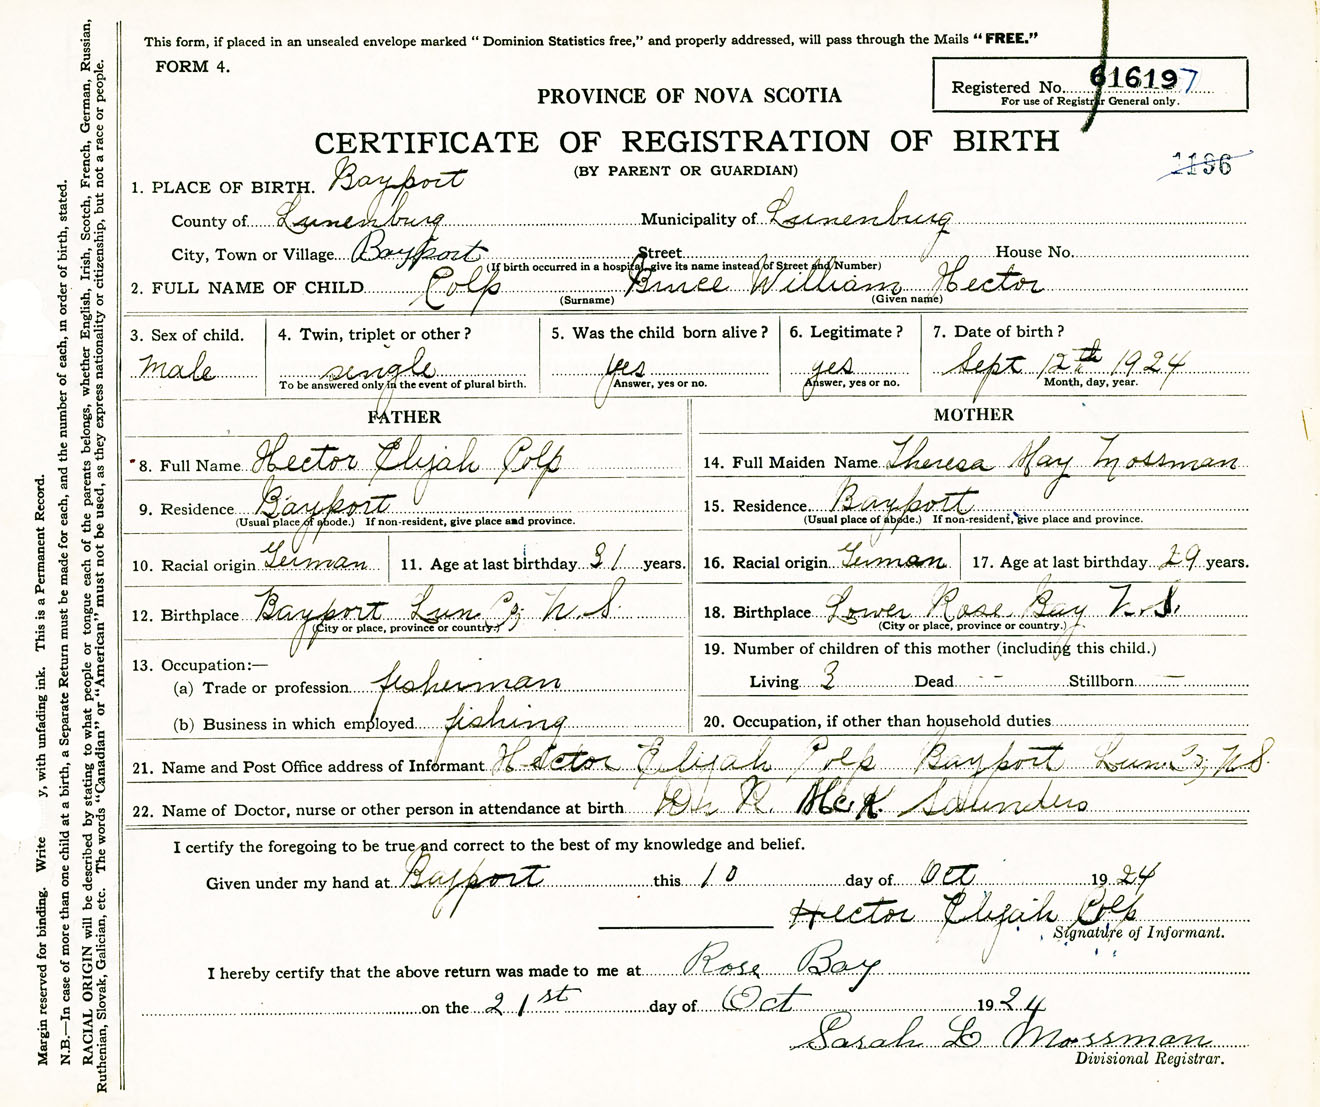 This form, if placed in an unsealed envelope marked "Dominion Statistics free," and properly addressed, will pass through the Mails "FREE."
FORM 4.
Registered No. 616197
For use of Registrar General only.
PROVINCE OF NOVA SCOTIA
CERTIFICATE OF REGISTRATION OF BIRTH
(BY PARENT OR GUARDIAN)
1196
1. PLACE OF BIRTH. Bayport
County of Lunenburg Municipality of Lunenburg
City, Town or Village Bayport Street House No.
(If birth occurred in a hospital, give its name instead of Street and Number)
2. FULL NAME OF CHILD Colp Bruce William Hector
(Surname) (Given name)
3. Sex of child. 4. Twin, triplet or other? 5. Was the child born alive? 6. Legitimate? 7. Date of birth?
Male single yes yes Sept 12th 1924
To be answered only in the event of plural birth. Answer, yes or no. Answer, yes or no. Month, day, year.
FATHER
8. Full Name Hector Elijah Colp
9. Residence Bayport
(Usual place of abode.) If non-resident, give place and province.
10. Racial origin German 11. Age at last birthday 31 years.
12. Birthplace Bayport Lun Co, N.S.
(City or place, province or country.)
13. Occupation:—
(a) Trade or profession fisherman
(b) Business in which employed fishing
MOTHER
14. Full Maiden Name Theresa May Mossman
15. Residence Bayport
(Usual place of abode.) If non-resident, give place and province.
16. Racial origin German 17. Age at last birthday 29 years.
18. Birthplace Lower Rose Bay N.S.
(City or place, province or country.)
19. Number of children of this mother (including this child.)
Living 3 Dead -- Stillborn —
20. Occupation, if other than household duties
21. Name and Post Office address of Informant Hector Elijah Colp Bayport Lun Co, N.S.
22. Name of Doctor, nurse or other person in attendance at birth Dr. R McK Saunders
I certify the foregoing to be true and correct to the best of my knowledge and belief.
Given under my hand at Bayport this 10 day of Oct 1924
Hector Elijah Colp
Signature of Informant.
I hereby certify that the above return was made to me at Rose Bay
on the 21st day of Oct 1924
Sarah L Mossman
Divisional Registrar.
Margin reserved for binding. Write y, with unfading ink. This is a Permanent Record.
N.B.—In case of more than one child at a birth, a Separate Return must be made for each, and the number of each, in order of birth, stated.
RACIAL ORIGIN will be described by stating to what people or tongue each of the parents belongs, whether English, Irish, Scotch, French, German, Russian,
Ruthenian, Slovak, Galician, etc. The words "Canadian" or "American" must not be used, as they express nationality or citizenship, but not a race or people.